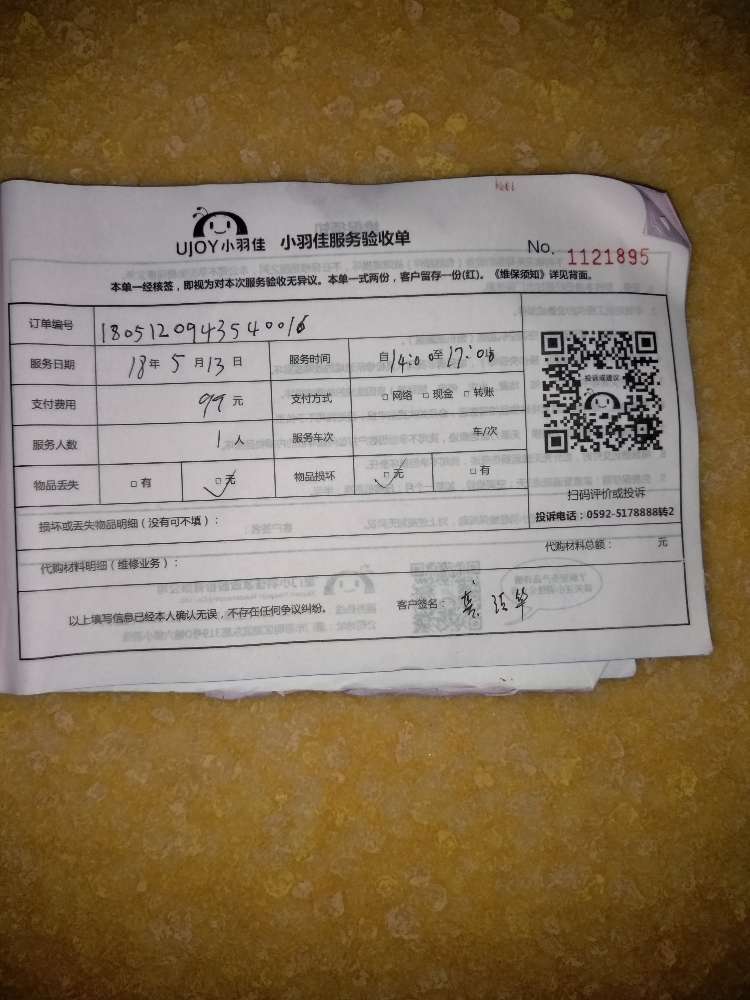 UJOY小羽佳 小羽佳服务验收单
No. 1121895
本单一经核签，即视为对本次服务验收无异议。本单一式两份，客户留存一份(红)。《维保须知》详见背面。
订单编号 1805120943540016
服务日期 18年 5月13日 服务时间 自14:00至17:00止
支付费用 99元 支付方式 □网络 □现金 □转账
服务人数 1人 服务车次 车/次
物品丢失 □有 □无 物品损坏 □无 □有
投诉或建议
扫码评价或投诉
投诉电话：0592-5178888转2
损坏或丢失物品明细（没有可不填）：
代购材料明细（维修业务）： 代购材料总额： 元
以上填写信息已经本人确认无误，不存在任何争议纠纷。 客户签名：